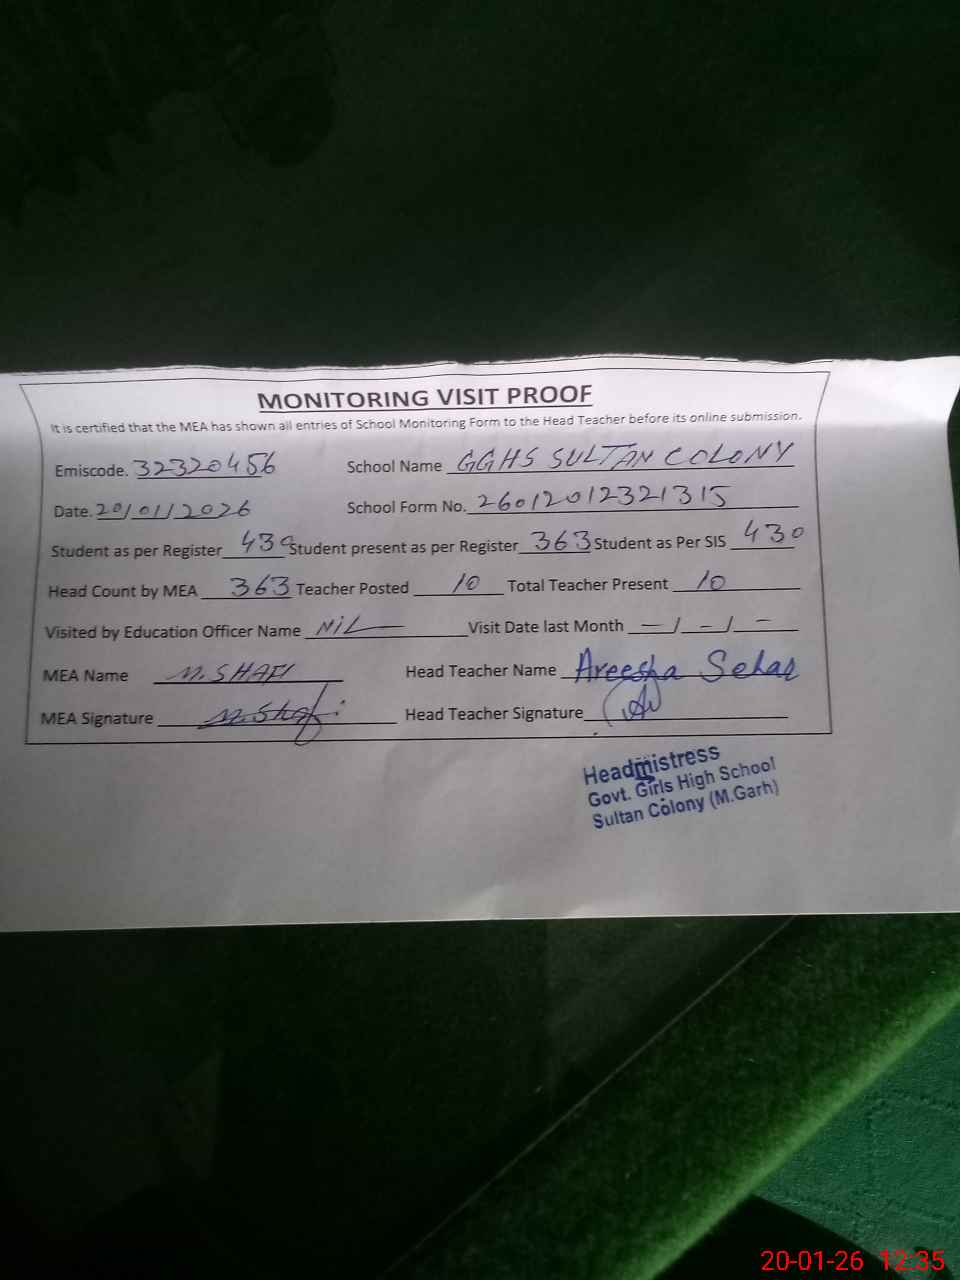 MONITORING VISIT PROOF
It is certified that the MEA has shown all entries of School Monitoring Form to the Head Teacher before its online submission.
Emiscode. 32320456 School Name GGHS SULTAN COLONY
Date. 20/01/2026 School Form No. 26012012321315
Student as per Register 430 Student present as per Register 363 Student as Per SIS 430
Head Count by MEA 363 Teacher Posted 10 Total Teacher Present 10
Visited by Education Officer Name NIL Visit Date last Month - / - / -
MEA Name M. SHAFI Head Teacher Name Areesha Sehar
MEA Signature M. Shafi Head Teacher Signature
Headmistress
Govt. Girls High School
Sultan Colony (M.Garh)
20-01-26 12:35